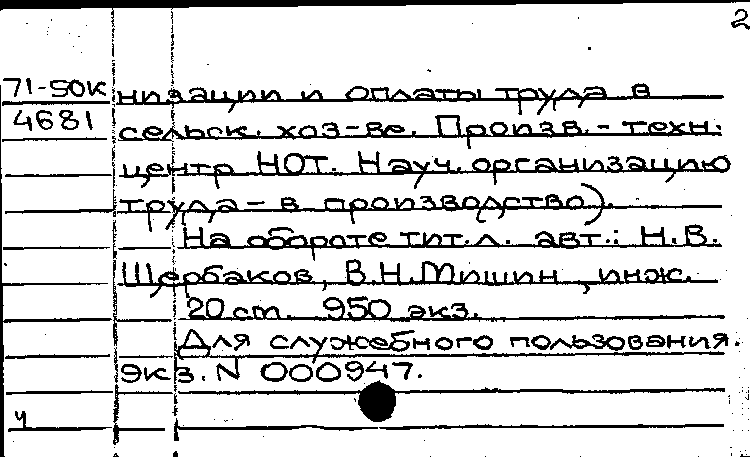 2
71-50к низации и оплаты труда в
4681 сельск. хоз-ве. Произв.-техн.
центр НОТ. Науч. организацию
труда - в производство).
На обороте тит. л. авт.: Н.В.
Щербаков, В.Н. Мишин, инж.
20 ст. 950 экз.
Для служебного пользования.
Экз. N 000947.
ч